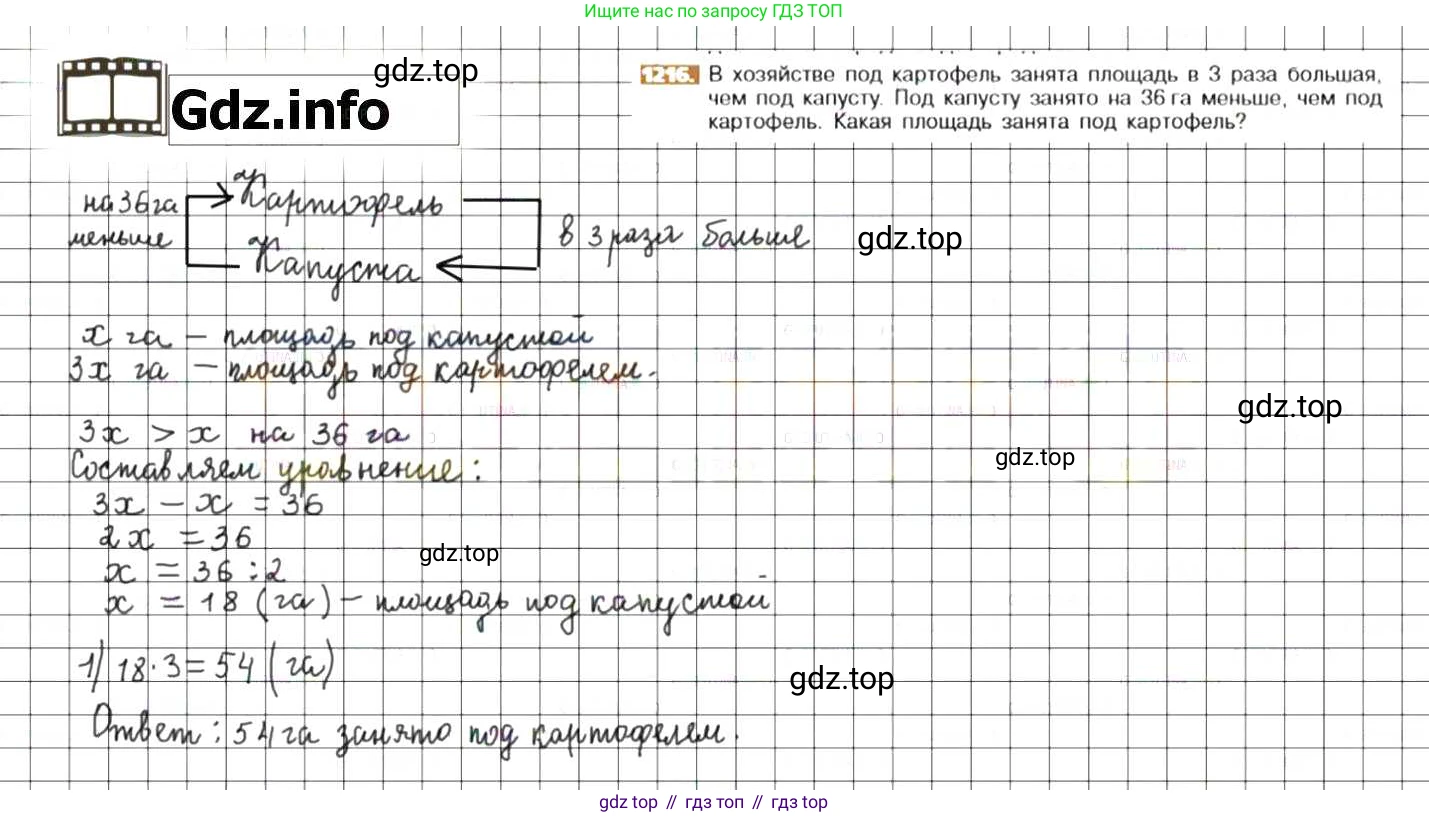 Ищите нас по запросу ГДЗ ТОП
gdz.top
Gdz.info
1216. В хозяйстве под картофель занята площадь в 3 раза большая,
чем под капусту. Под капусту занято на 36 га меньше, чем под
картофель. Какая площадь занята под картофель?
на 36 га
меньше
Картофель
Капуста
в 3 раза больше
gdz.top
x га – площадь под капустой
3x га – площадь под картофелем.
gdz.top
3x > x на 36 га
Составляем уравнение:
gdz.top
3x – x = 36
2x = 36
gdz.top
x = 36 : 2
x = 18 (га) – площадь под капустой
1) 18 · 3 = 54 (га)
gdz.top
Ответ: 54 га занято под картофелем.
gdz top // гдз топ // gdz top